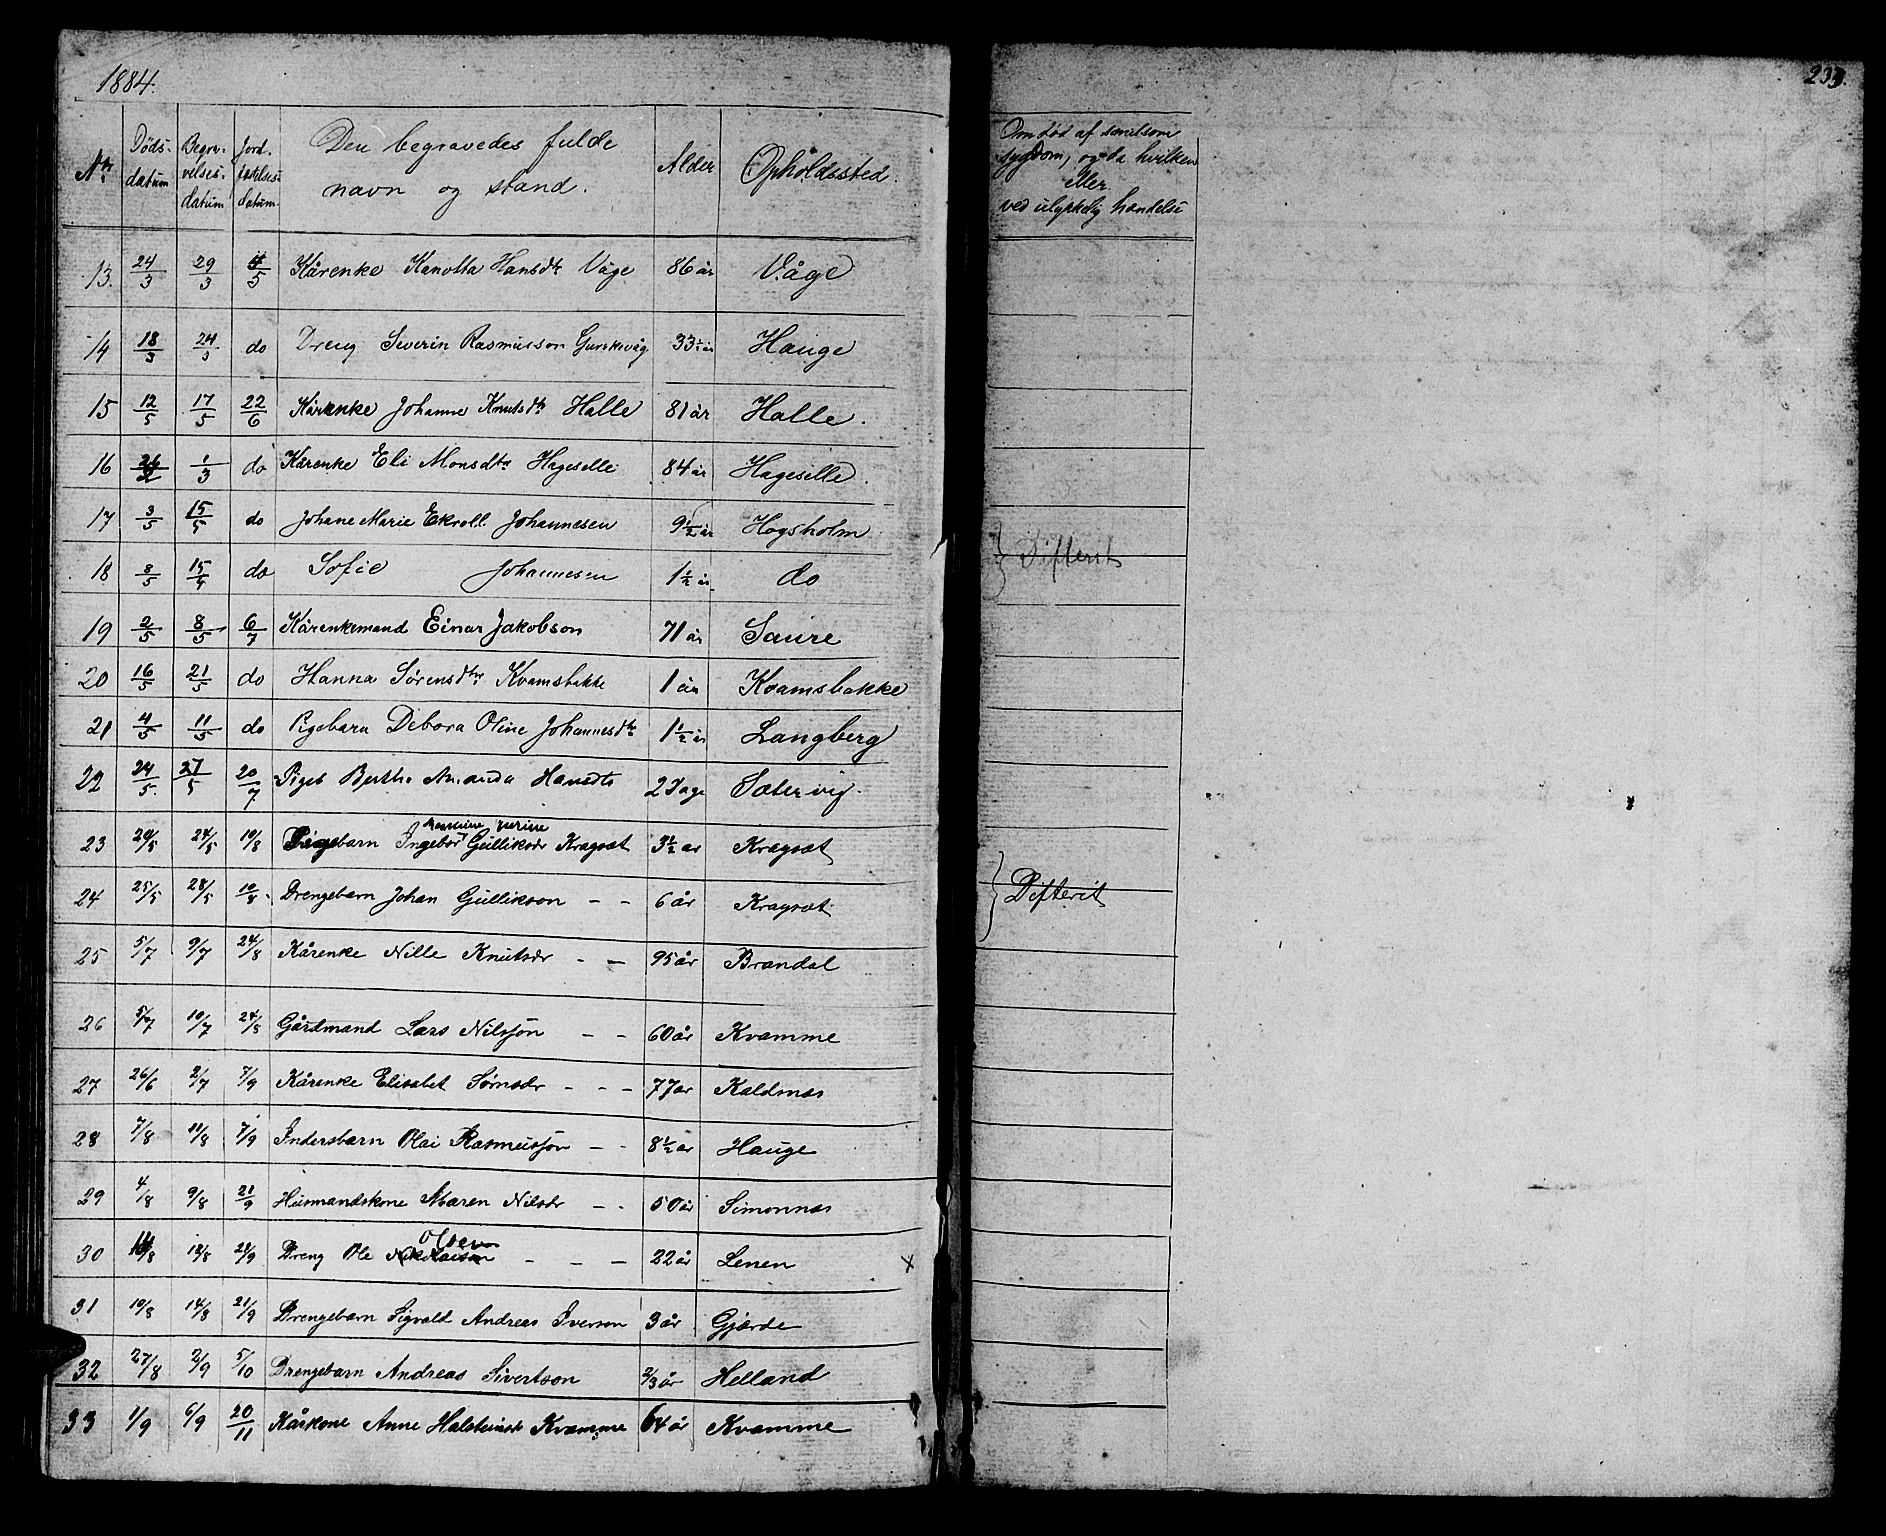 1884.
233.
Nr. Døds-datum Begravelses-datum Jordfæstelses-datum Den begravedes fulde navn og stand. Alder Opholdssted. Om død af smitsom sygdom, og da hvilken eller ved ulykkelig hændelse
13. 24/3 29/3 4/5 Kårenke Hansdtr Våge 86 år Våge
14 18/3 24/3 do Dreng Severin Rasmusson Gurskevåg 33 ½ år Hauge
15 12/5 17/5 22/6 Kårenke Johanne Knutsdtr Halle 81 år Halle.
16 1/3 do Kårenke Eli Monsdtr Hageselle 84 år Hageselle.
17 3/5 15/5 do Johane Marie Ekroll Johannesen 9 ½ år Hogsholm
18 8/5 do Sofie Johannesen 1 ½ år do
} Difterit
19 2/5 8/5 6/7 Kårenkemand Einar Jakobson 71 år Saure
20 16/5 21/5 do Hanna Sørensdtr Kvamsbakke 1 år Kvamsbakke
21 4/5 11/5 do Pigebarn Debora Oline Johannesdtr 1 ½ år Langberg
22 24/5. 27/5 20/7 Pigeb Berthe Amanda Hansdtr 2 Dage Sætervig.
23 20/5 24/5 10/8 Pigebarn Ingebor Gullikodr Kragsæt 3 ½ år Kragsæt
24 25/5 28/5 10/8 Drengebarn Johan Gullikson - - 6 år Kragsæt
} Difterit
25 5/7 9/7 24/8 Kårenke Nille Knutsdr - - 95 år Brandal
26 5/7 10/7 24/8 Gårdmand Lars Nilssøn - - 60 år Kvamme
27 26/6 2/7 7/9 Kårenke Elisabet Sørnsdr - - - 77 år Kaldnæs
28 7/8 11/8 7/9 Indersbarn Olai Rasmussøn - - 8 ½ år Hauge
29 4/8 9/8 21/9 Husmandskone Maren Nilsdr - - 50 år Simonnæs
Olsen
30 18/8 21/9 Dreng Ole Nikolaisen - - - 22 år Lenen ×
31 10/8 14/8 21/9 Drengebarn Sigvald Andreas Iverson 3 år Gjærde
32 27/8 2/9 5/10 Drengebarn Andreas Sivertson 2/3 år Helland
33 1/9 6/9 20/11 Kårkone Anne Halsteinsdr Kvamme 64 år Kvamme